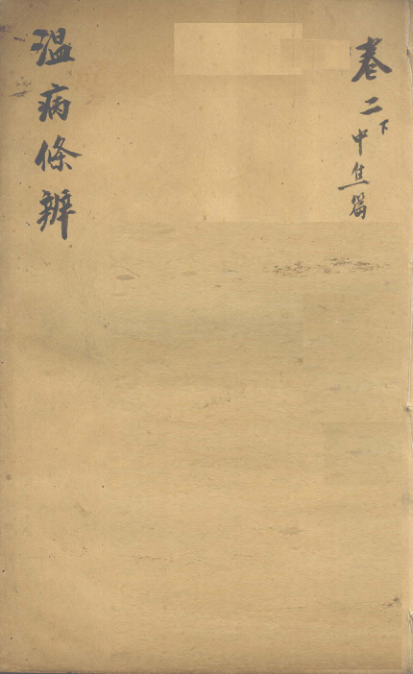 卷二下中焦篇
温病條辨